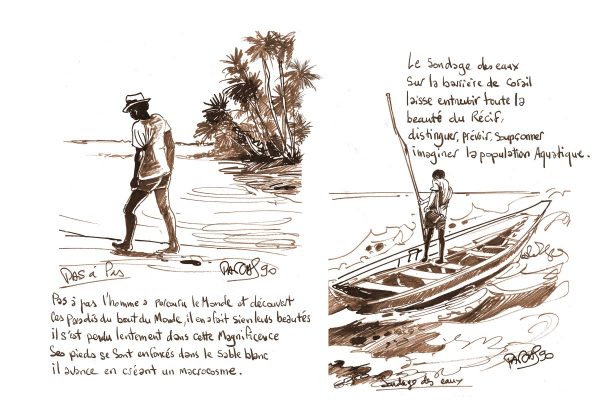 Pas à Pas
PASCAL 90
Pas à pas l'homme a parcouru le Monde et découvert
Ces Paradis du bout du Monde, il en a fait siens leurs beautés
il s'est perdu lentement dans cette Magnificence
Ses pieds se sont enfoncés dans le sable blanc
il avance en créant un macrocosme.
Le Sondage des eaux
Sur la barrière de Corail
laisse entrevoir toute la
beauté du Récif,
distinguer, prévoir, Soupçonner
imaginer la population Aquatique.
PASCAL 90
Sondage des eaux